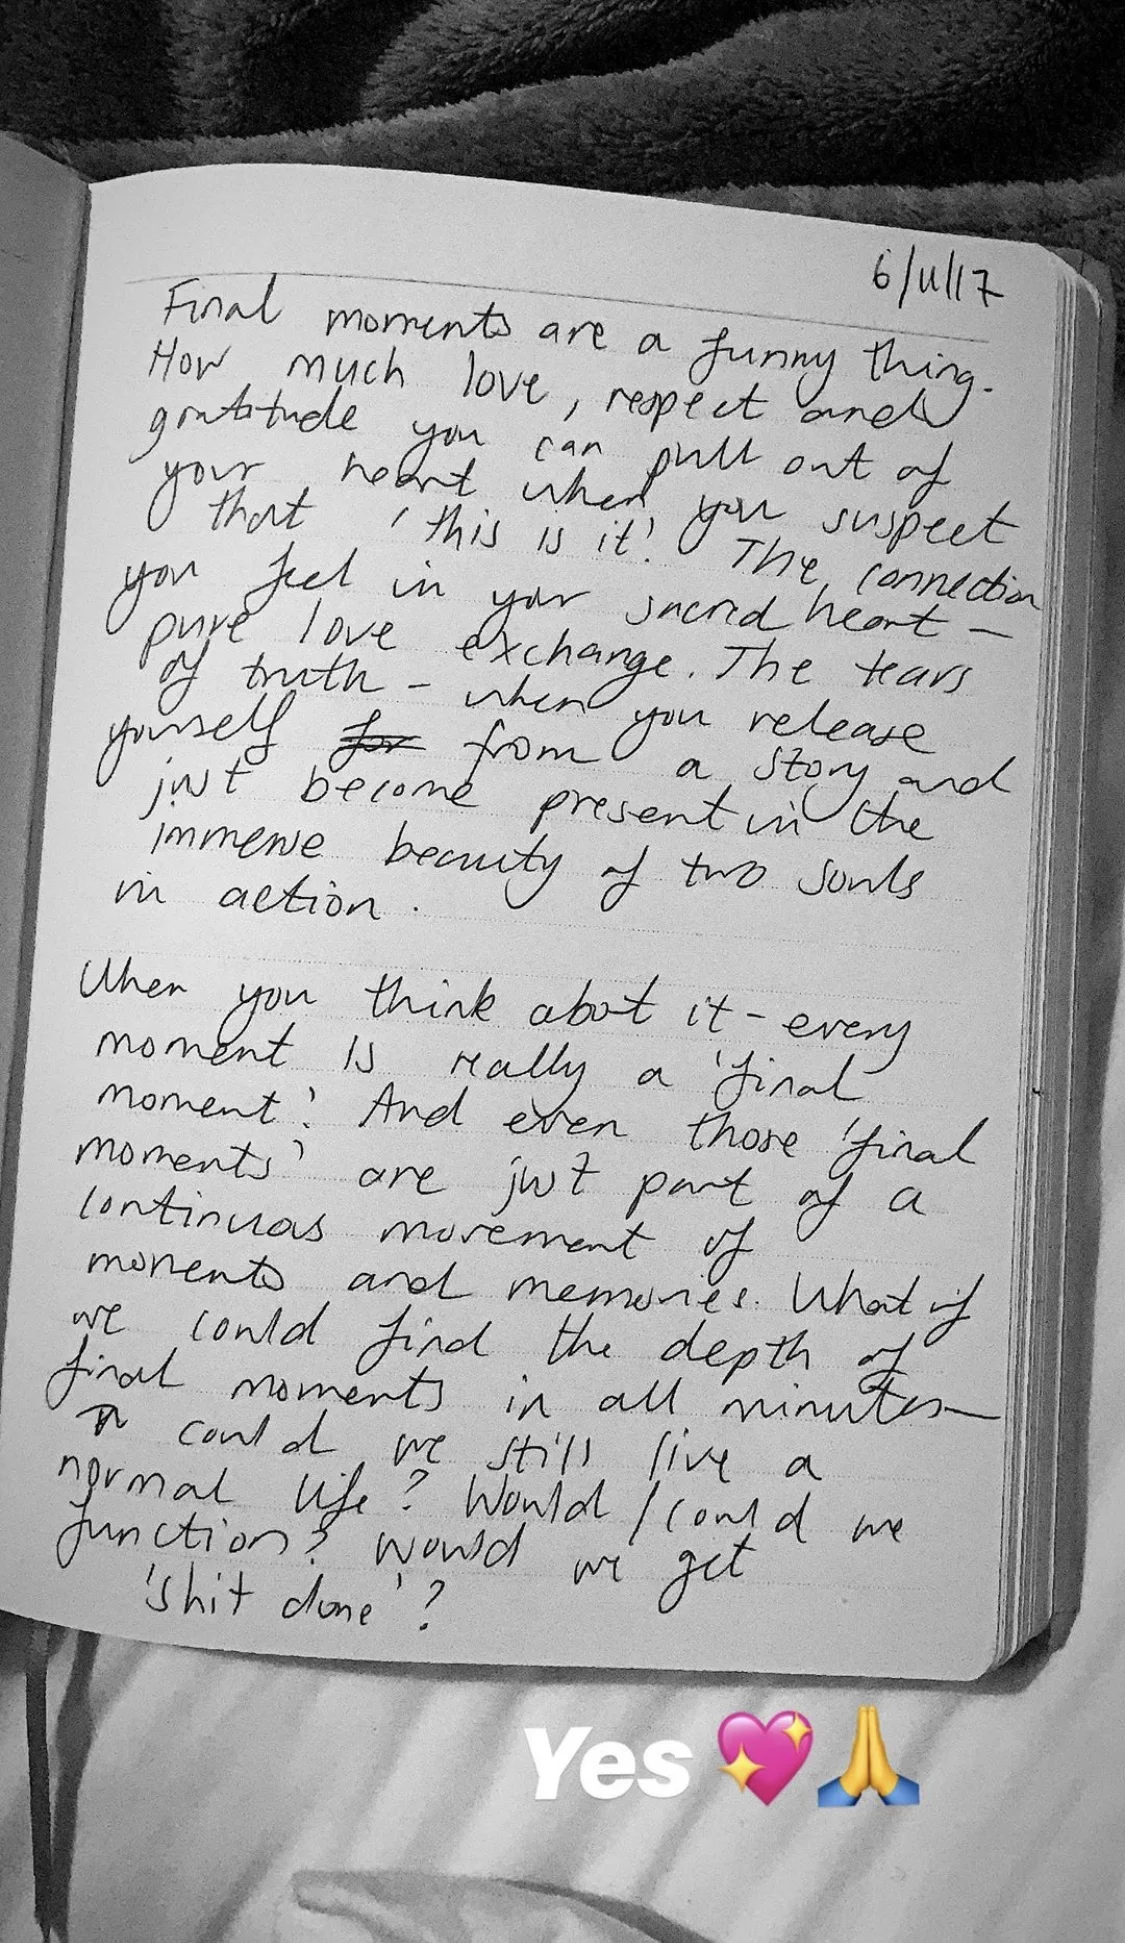 6/11/17
Final moments are a funny thing.
How much love, respect and
gratitude you can pull out of
your heart when you suspect
that 'this is it'. The connection
you feel in your sacred heart –
pure love exchange. The tears
of truth – when you release
yourself for from a story and
just become present in the
immense beauty of two souls
in action.
When you think about it – every
moment is really a 'final
moment'. And even those 'final
moments' are just part of a
continuos movement of
moments and memories. What if
we could find the depth of
final moments in all minutes –
could we still live a
normal life? Would / could we
function? Would we get
'shit done'?
Yes 💖🙏